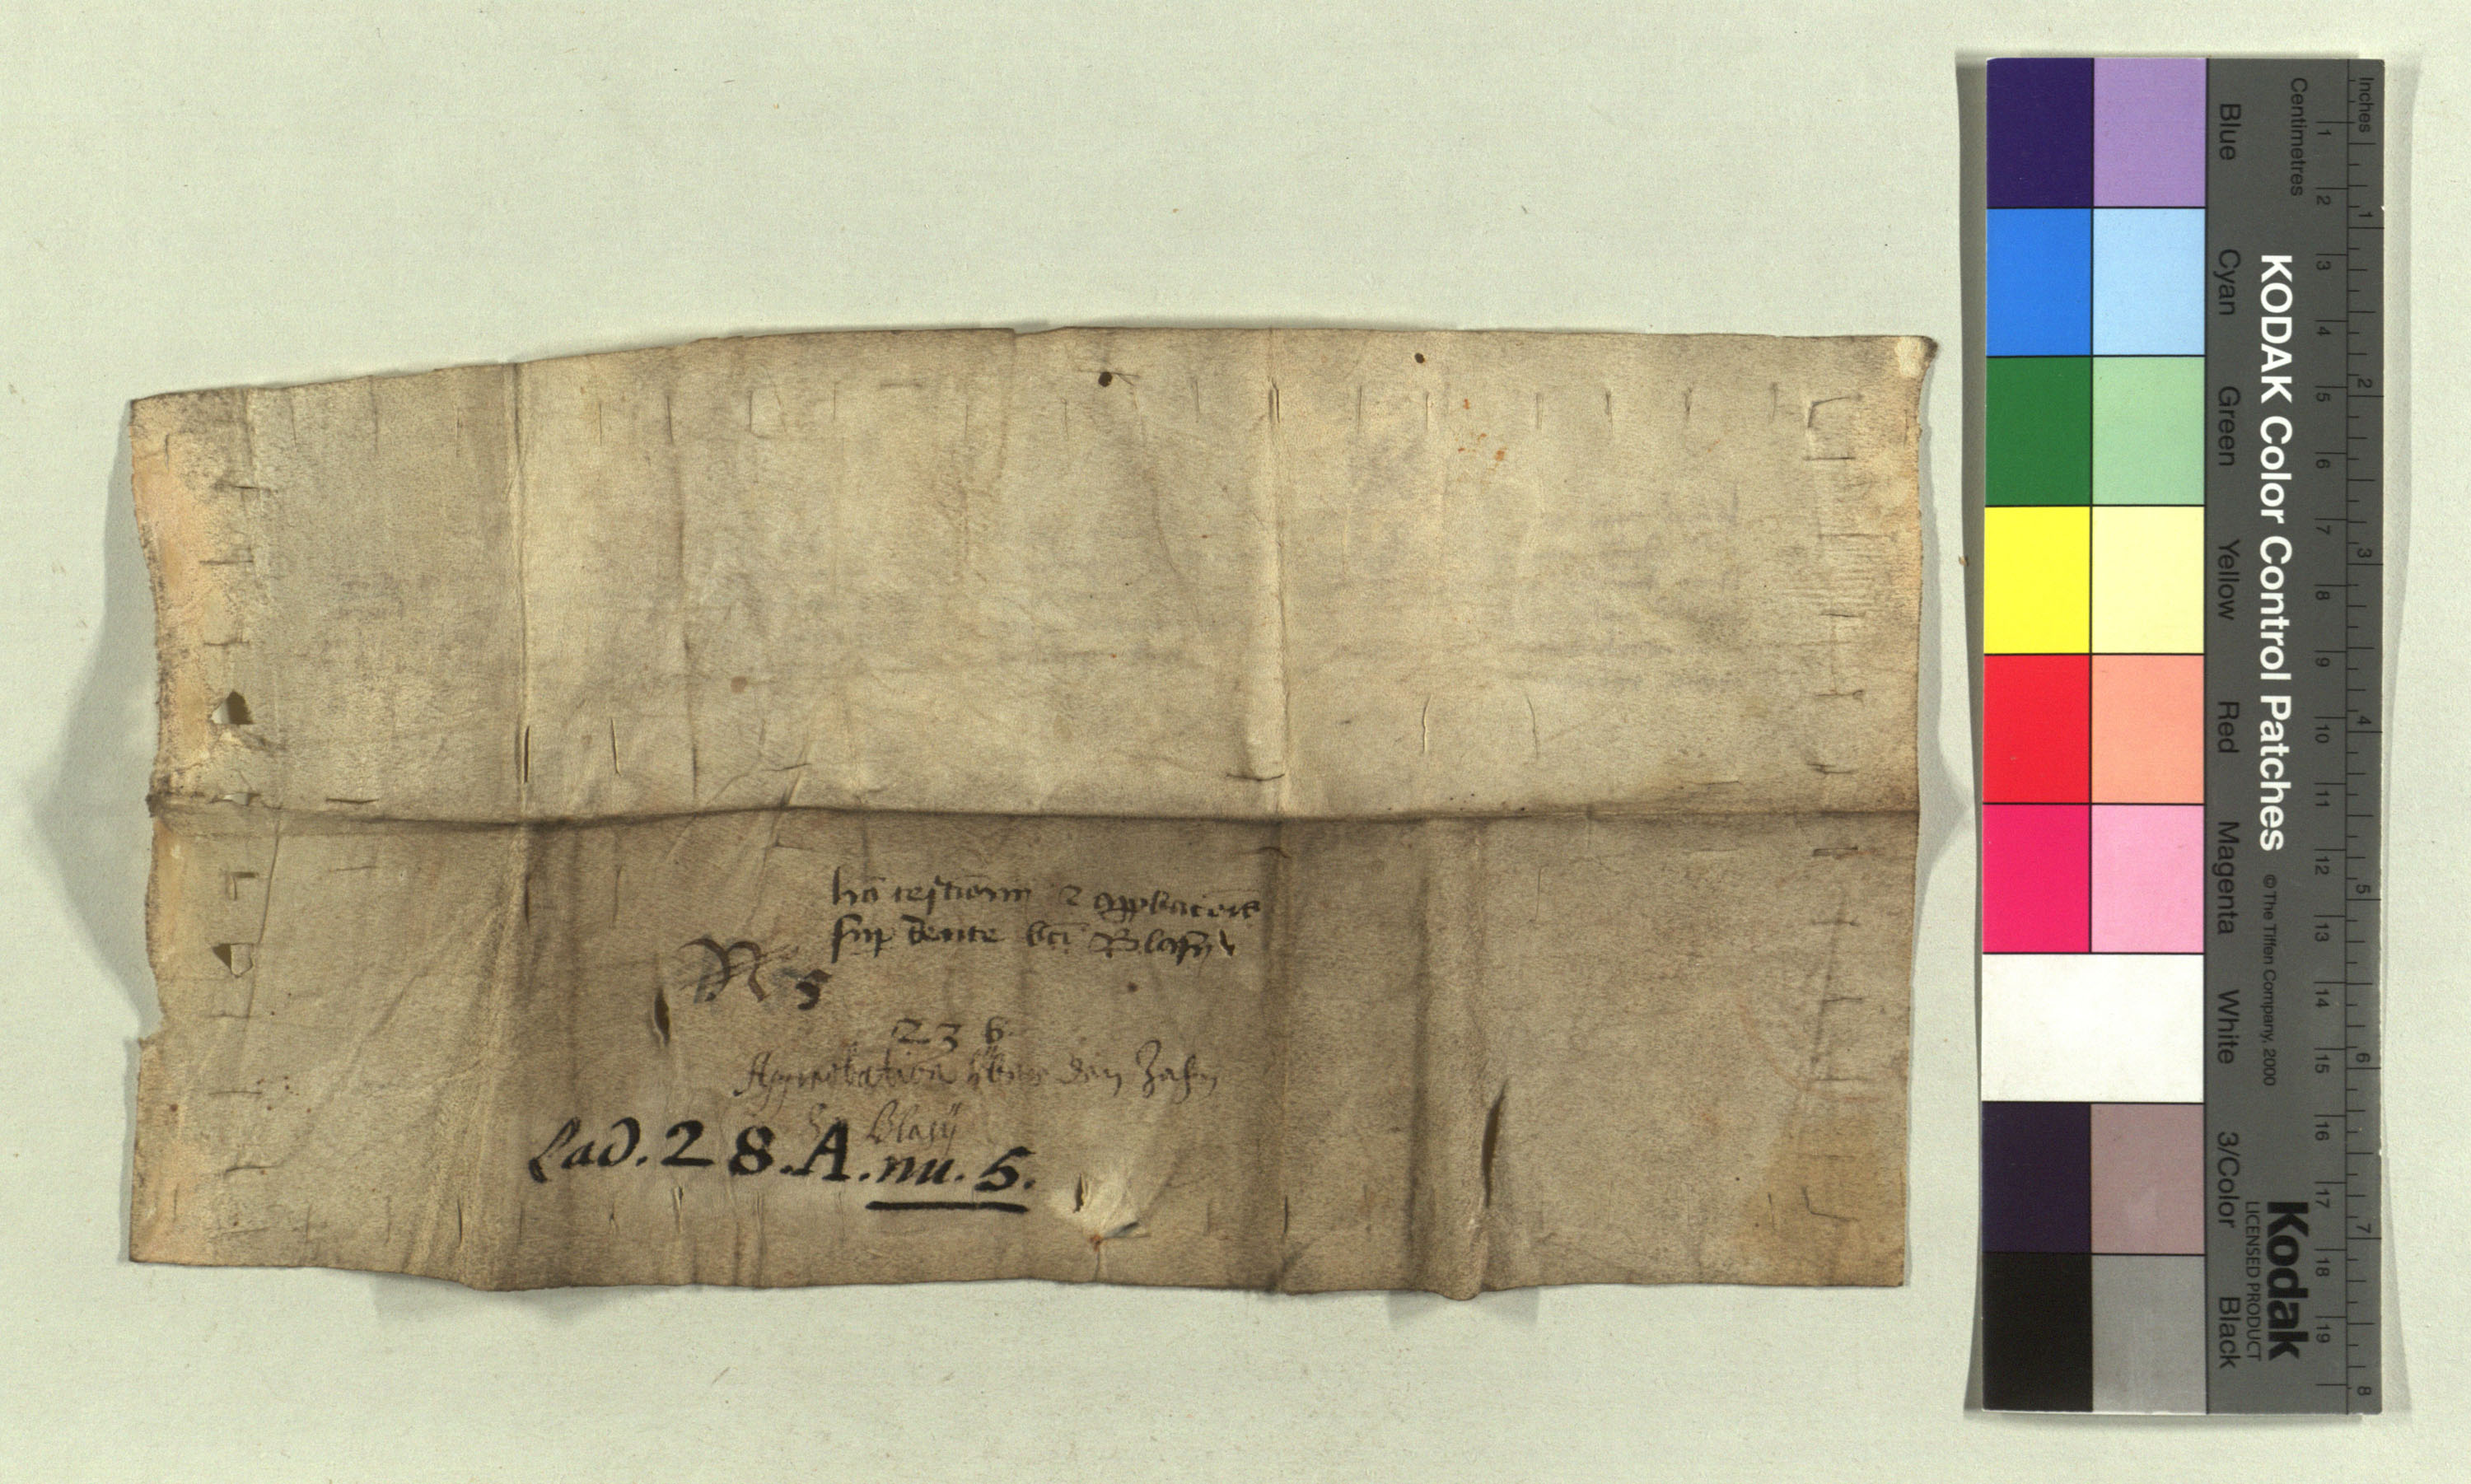 sup dente bti Blasy
N 5
23 6
Approbation über den Zahn
S. Blasÿ
Lad. 28. A. nu. 5.
Inches
Centimetres
1 2 3 4 5 6 7 8
1 2 3 4 5 6 7 8 9 10 11 12 13 14 15 16 17 18 19
KODAK Color Control Patches
©The Tiffen Company, 2000
Kodak
LICENSED PRODUCT
Blue
Cyan
Green
Yellow
Red
Magenta
White
3/Color
Black